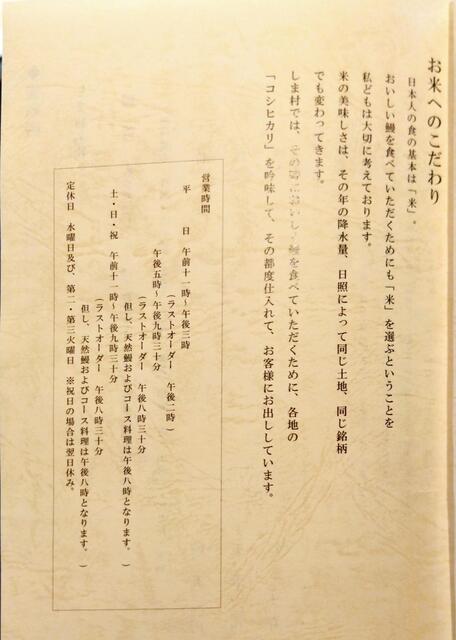 お米へのこだわり
日本人の食の基本は「米」。
おいしい鰻を食べていただくためにも「米」を選ぶということを
私どもは大切に考えております。
米の美味しさは、その年の降水量、日照によって同じ土地、同じ銘柄
でも変わってきます。
しま村では、その時においしく鰻を食べていただくために、各地の
「コシヒカリ」を吟味して、その都度仕入れて、お客様にお出ししています。
営業時間
平 日 午前十一時〜午後三時
(ラストオーダー 午後二時)
午後五時〜午後九時三十分
(ラストオーダー 午後八時三十分
但し、天然鰻およびコース料理は午後八時となります。)
土・日・祝 午前十一時〜午後九時三十分
(ラストオーダー 午後八時三十分
但し、天然鰻およびコース料理は午後八時となります。)
定休日 水曜日及び、第二・第三火曜日 ※祝日の場合は翌日休み。